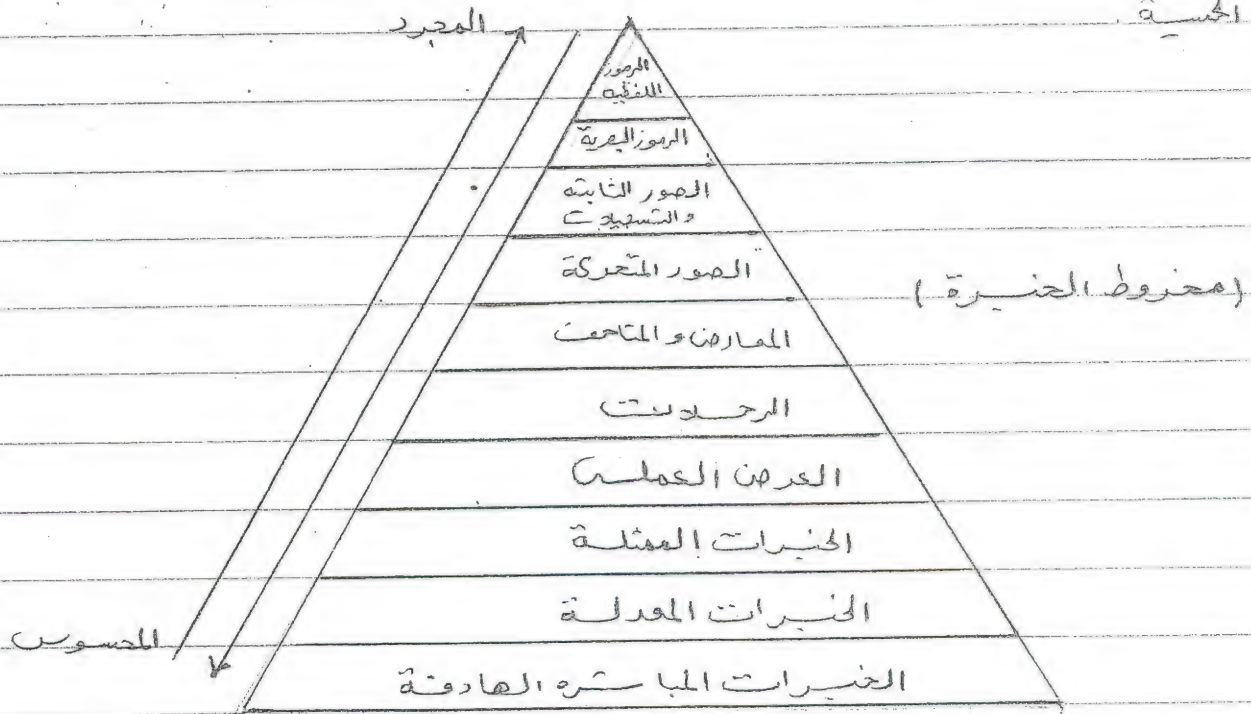 الحسية
المجرد
الرموز
اللفظيه
الرموز البصرية
الصور الثابته
والتسجيلات
الصور المتحركة
(مخروط الخبرة)
المعارض و المتاحف
الرحلات
العرض العملي
الخبرات الممثلة
الخبرات المعدلة
المحسوس
الخبرات المباشره الهادفة